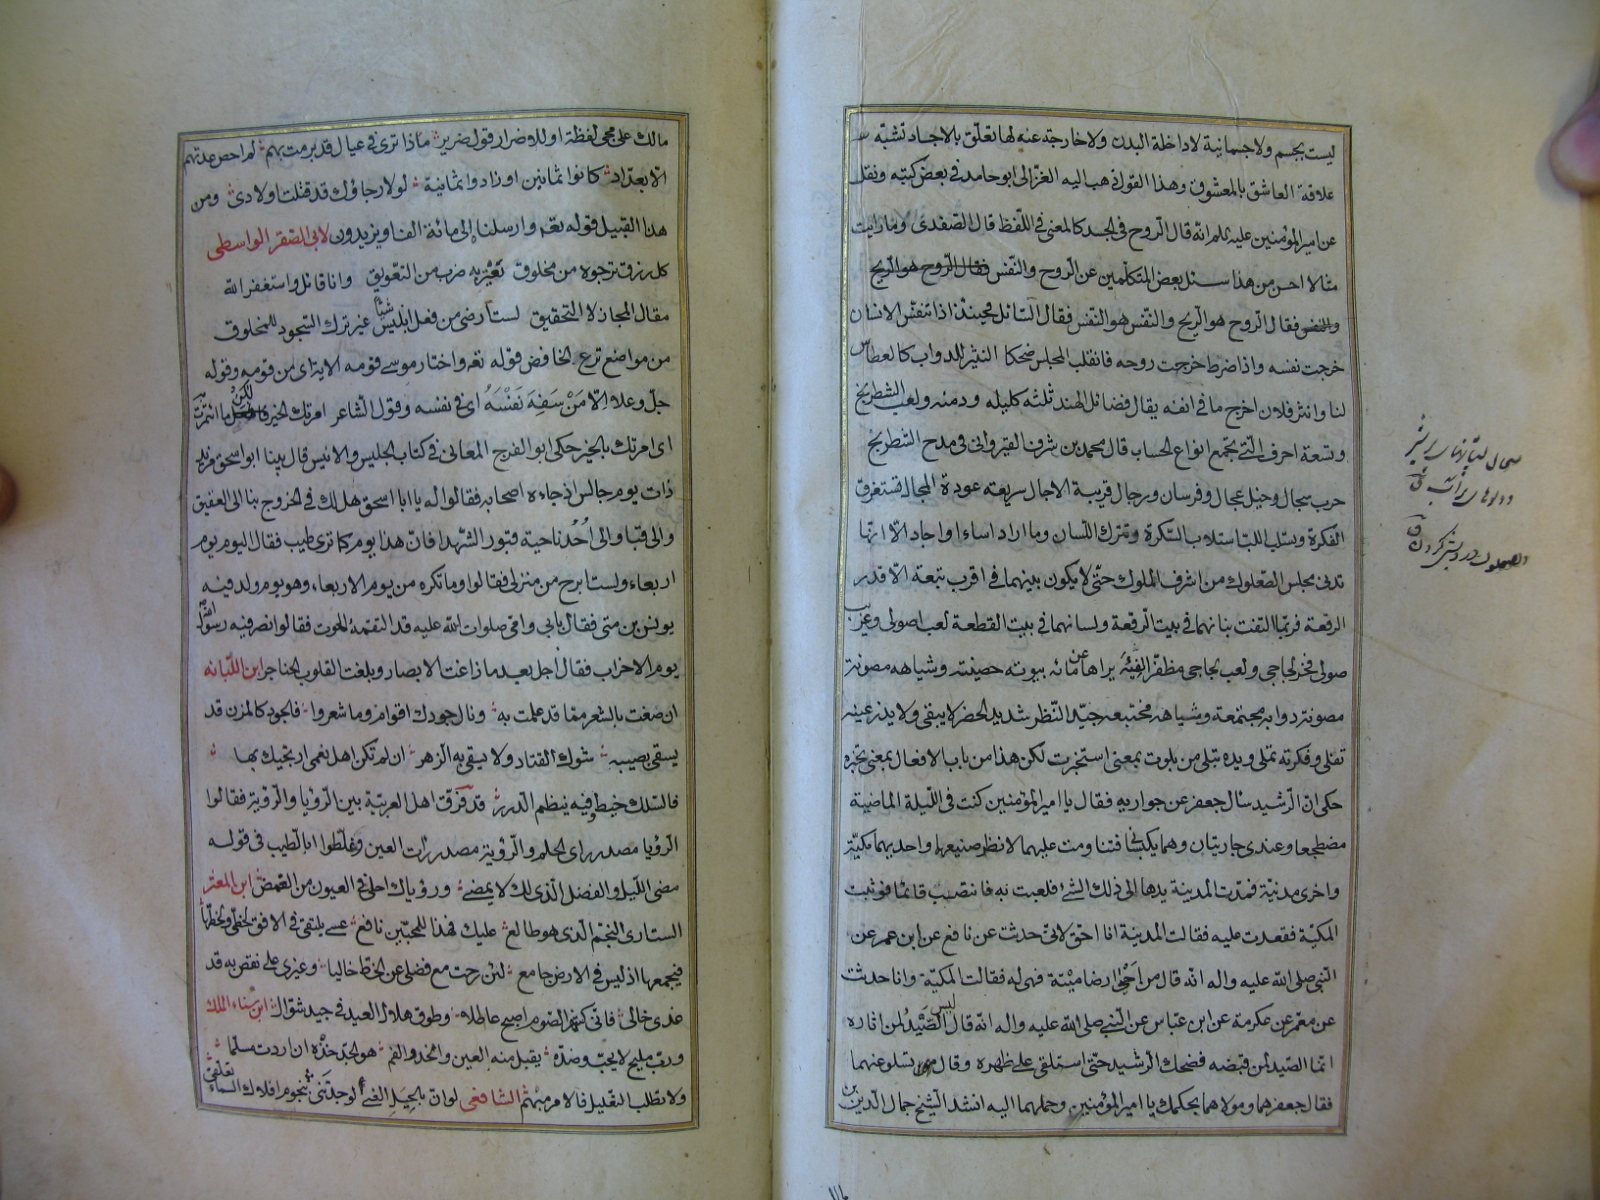 ليست بجسم ولا جسمانية لا داخلة البدن ولا خارجة عنه لها تعلّق بالاجساد تشبه
علاقة العاشق بالمعشوق وهذا القول ذهب اليه الغزالى ابو حامد في بعض كتبه ونقل
عن امير المؤمنين عليه السلم انّه قال الرّوح في الجسد كالمعنى في اللّفظ قال الصّفدى وما رايت
مثالا احسن من هذا سئل بعض المتكلّمين عن الرّوح والنّفس فقال الروح هو الريح
والنفس فقال الرّوح هو الرّيح والنّفس هو النّفس فقال السّائل فحينئذ اذا تنفّس الانسان
خرجت نفسه واذا ضرط خرجت روحه فانقلب المجلس ضحكا النثير للدواب كالعطاس
لنا وانثر فلان اخرج ما في انفه يقال فضائل الهند ثلثة كليله ودمنه ولعب الشطرنج
وتسعة احرف الّتى تجمع انواع الحساب قال محمد بن شرف القيروانى في مدح الشطرنج
حرب سجال وخيل عجال وفرسان ورجال قريبة الاجال سريعته عودة المجال تستغرق
الفكرة وتسلب اللبّ استلاب السّكرة وتترك اللسان وما اراد اساء او اجاد الّا انها
تدنى مجلس الصّعلوك من اشرف الملوك حتّى لا يكون بينهما في اقرب تبعة الا قدر
الرقعة فربّما التقت بنانهما في بيت الرقعة ولسانهما في بيت القطعة لعب اصولى وعزيب
صولى فخر لجاجى ولعب لجاجى مظفّر الفئة يراها عن مائه بيوته حصينته وشياهه مصونة
مصونة دوابه مجتمعة وشياهه مختبعه جيّد النّظر شديد الحضر لا يبقى ولا يذر عينه
تقلى وفكرته تملى ويده تبلى من بلوت بمعنى استخبرت لكن هذا من باب الافعال بمعنى تخبره
حكى انّ الرّشيد سأل جعفر عن جواريه فقال يا امير المؤمنين كنت في اللّيلة الماضية
مضطجعا وعندى جاريتان وهما يكبسانى فتناومت عليهما لانظر صنيعهما واحديهما مكيّة
واخرى مدنيّة فمدّت المدينة يدها الى ذلك الشئ فلعبت به فانتصب قائما فوثبت
المكيّة فقعدت عليه فقالت المدينة انا احقّ لانّى حدثت عن نافع عن ابن عمر عن
النّبى صلى اللّه عليه واله انّه قال من احيى ارضا ميّتة فهى له فقالت المكيّة وانا حدثت
عن معمر عن عكرمة عن ابن عبّاس عن النّبى صلى اللّه عليه واله انّه قال ليس الصّيد لمن اثاره
انّما الصّيد لمن قبضه فضحك الرّشيد حتّى استلقى على ظهره وقال تسلو عنهما
فقال جعفر هما ومولاهما بحكمك يا امير المؤمنين وحملهما اليه انشد الشّيخ جمال الدّين بن
مالك على مجئ لفظة او للاضراب قول ضرير ماذا ترى في عيال قد برمت بهم لم احص عدتهم
الا بعدّاد كانوا ثمانين او زادوا ثمانية لولا رجاؤك قد قتلت اولادى ومن
هذا القبيل قوله تعم وارسلناه الى مائة الف او يزيدون لابى الصّقر الواسطى
كل رزق ترجوه من مخلوق يعتريه ضرب من التّعويق وانا قائل واستغفر اللّه
مقال المجاز لا التحقيق لست ارضى من فعل ابليس شيئا غير ترك السّجود للمخلوق
من مواضع نزع الخافض قوله تعم واختار موسى قومه الاية اى من قومه وقوله
جلّ وعلا الّا من سفه نفسه اى في نفسه وقول الشّاعر امرتك الخير فافعل ما ائتمرت
اى امرتك بالخير حكى ابو الفرج المعافى في كتاب الجليس والانيس قال بينا ابو اسحق مزيد
ذات يوم جالس اذ جاءه اصحابه فقالوا له يا ابا اسحق هل لك في الخروج بنا الى العقيق
والى قبا والى اُحُد ناحية قبور الشّهدا فانّ هذا يوم كما ترى طيب فقال اليوم يوم
اربعاء ولست ابرح من منزلى فقالوا وما تكره من يوم الاربعاء وهو يوم ولد فيه
يونس بن متى فقال بابى وامّى صلوات اللّه عليه قد التقمه الحوت فقالوا نصر فيه رسول اللّه
يوم الاحزاب فقال اجل بعد ما زاغت الابصار وبلغت القلوب الحناجر ابن اللبّانه
ان ضعت بالشعر ممّا قد علمت به ونال جودك اقوام وما شعروا فالجود كالمزن قد
يسقى بصيبه شوك القتاد ولا يسقى به الزّهر ان لم تكن اهل نعمى ارتجيك بها
فالسّلك خيط وفيه ينظم الدّرر قد فرّق اهل العربيّة بين الرّؤيا والرّؤية فقالوا
الرّؤيا مصدر راى الحلم والرّؤية مصدر رأت العين وغلّطوا ابا الطّيب في قوله
مضى اللّيل والفضل الّذى لك لا يمضى ورؤياك احلى في العيون من الغمض ابن المعتز
الست ارى النّجم الّذى هو طالع عليك فهذا للمحبّين نافع عسى يلتقى في الافق لحظى ولحظها
فيجمعها اذ ليس في الارض جامع لئن رحت مع فضلى عن الحظّ خاليا وغيرى على نقص به قد
غدى خالى فانّى كشهر الصّوم اصبح عاطلا وطوق هلال العيد في جيد شوّال ابن سناء الملك
وربّ مليح لا يحبّ وضدّه يقبّل منه العين والخد والفم هو الجدّ خذه ان اردت مسلّما
ولا تطلب التّعليل فالامر مبهم الشافعى لو انّ بالحيل الغنى لوجدتنى بنجوم افلاك السّماء تعلّقى